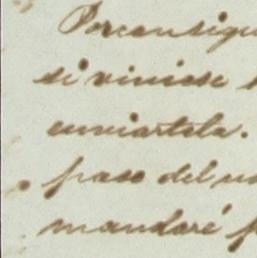 Por consigu
si viniese
enviartela.
paso del va
mandaré p